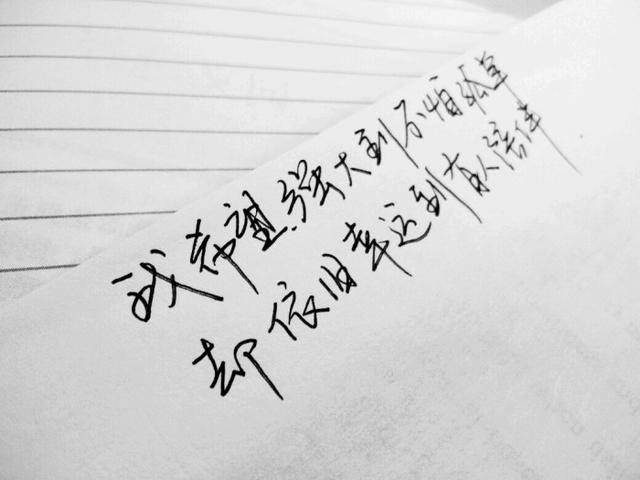 我希望强大到不怕孤单
却依旧幸运到有人陪伴